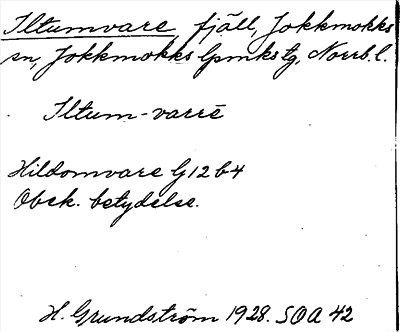 Iltumvare, fjäll, Jokkmokks
sn, Jokkmokks lpmkstg, Norrb. l.
Iltum-varrē
Hildomvare G12b4
Obek. betydelse.
H. Grundström 1928. SOA 42